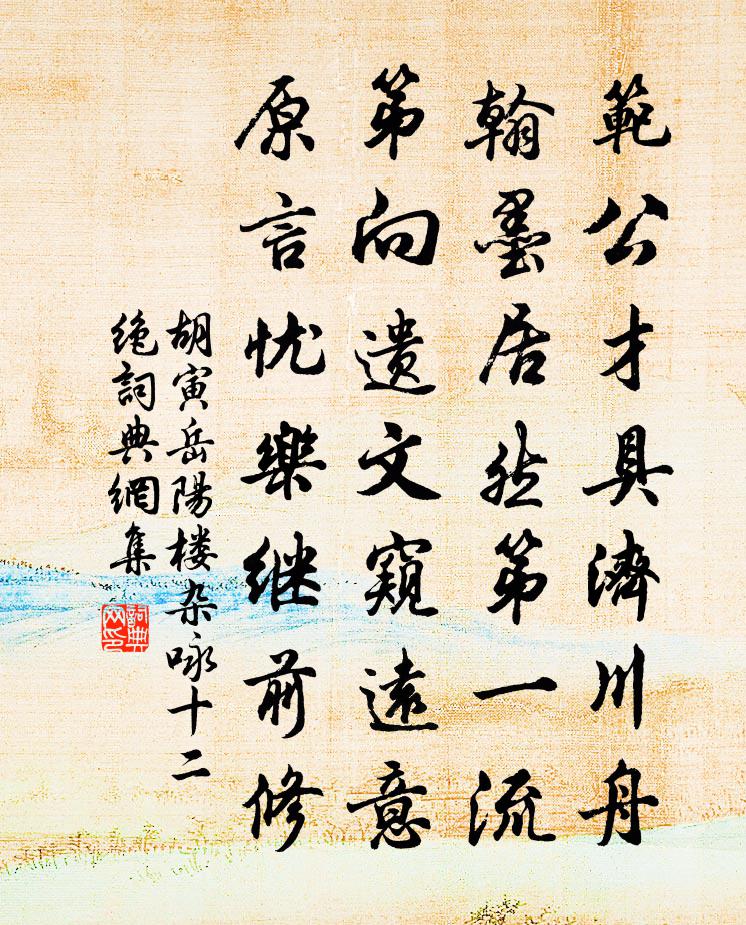 範公才具濟川舟
翰墨居然第一流
第向遺文窺遠意
原言忧樂继前修
胡寅岳陽楼杂咏十二
绝詞典網集
詞典
网印